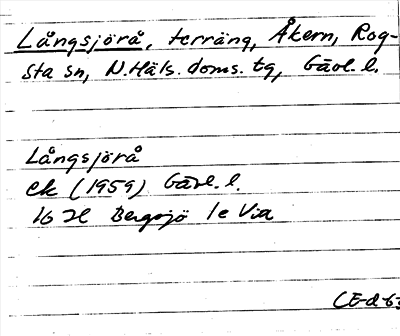 Långsjörå, terräng, Åkern, Rog-
sta sn, N.Häls. doms. tg, Gävl. l.
Långsjörå
ek (1959) Gävl. l.
16 H Bergsjö 1e Via